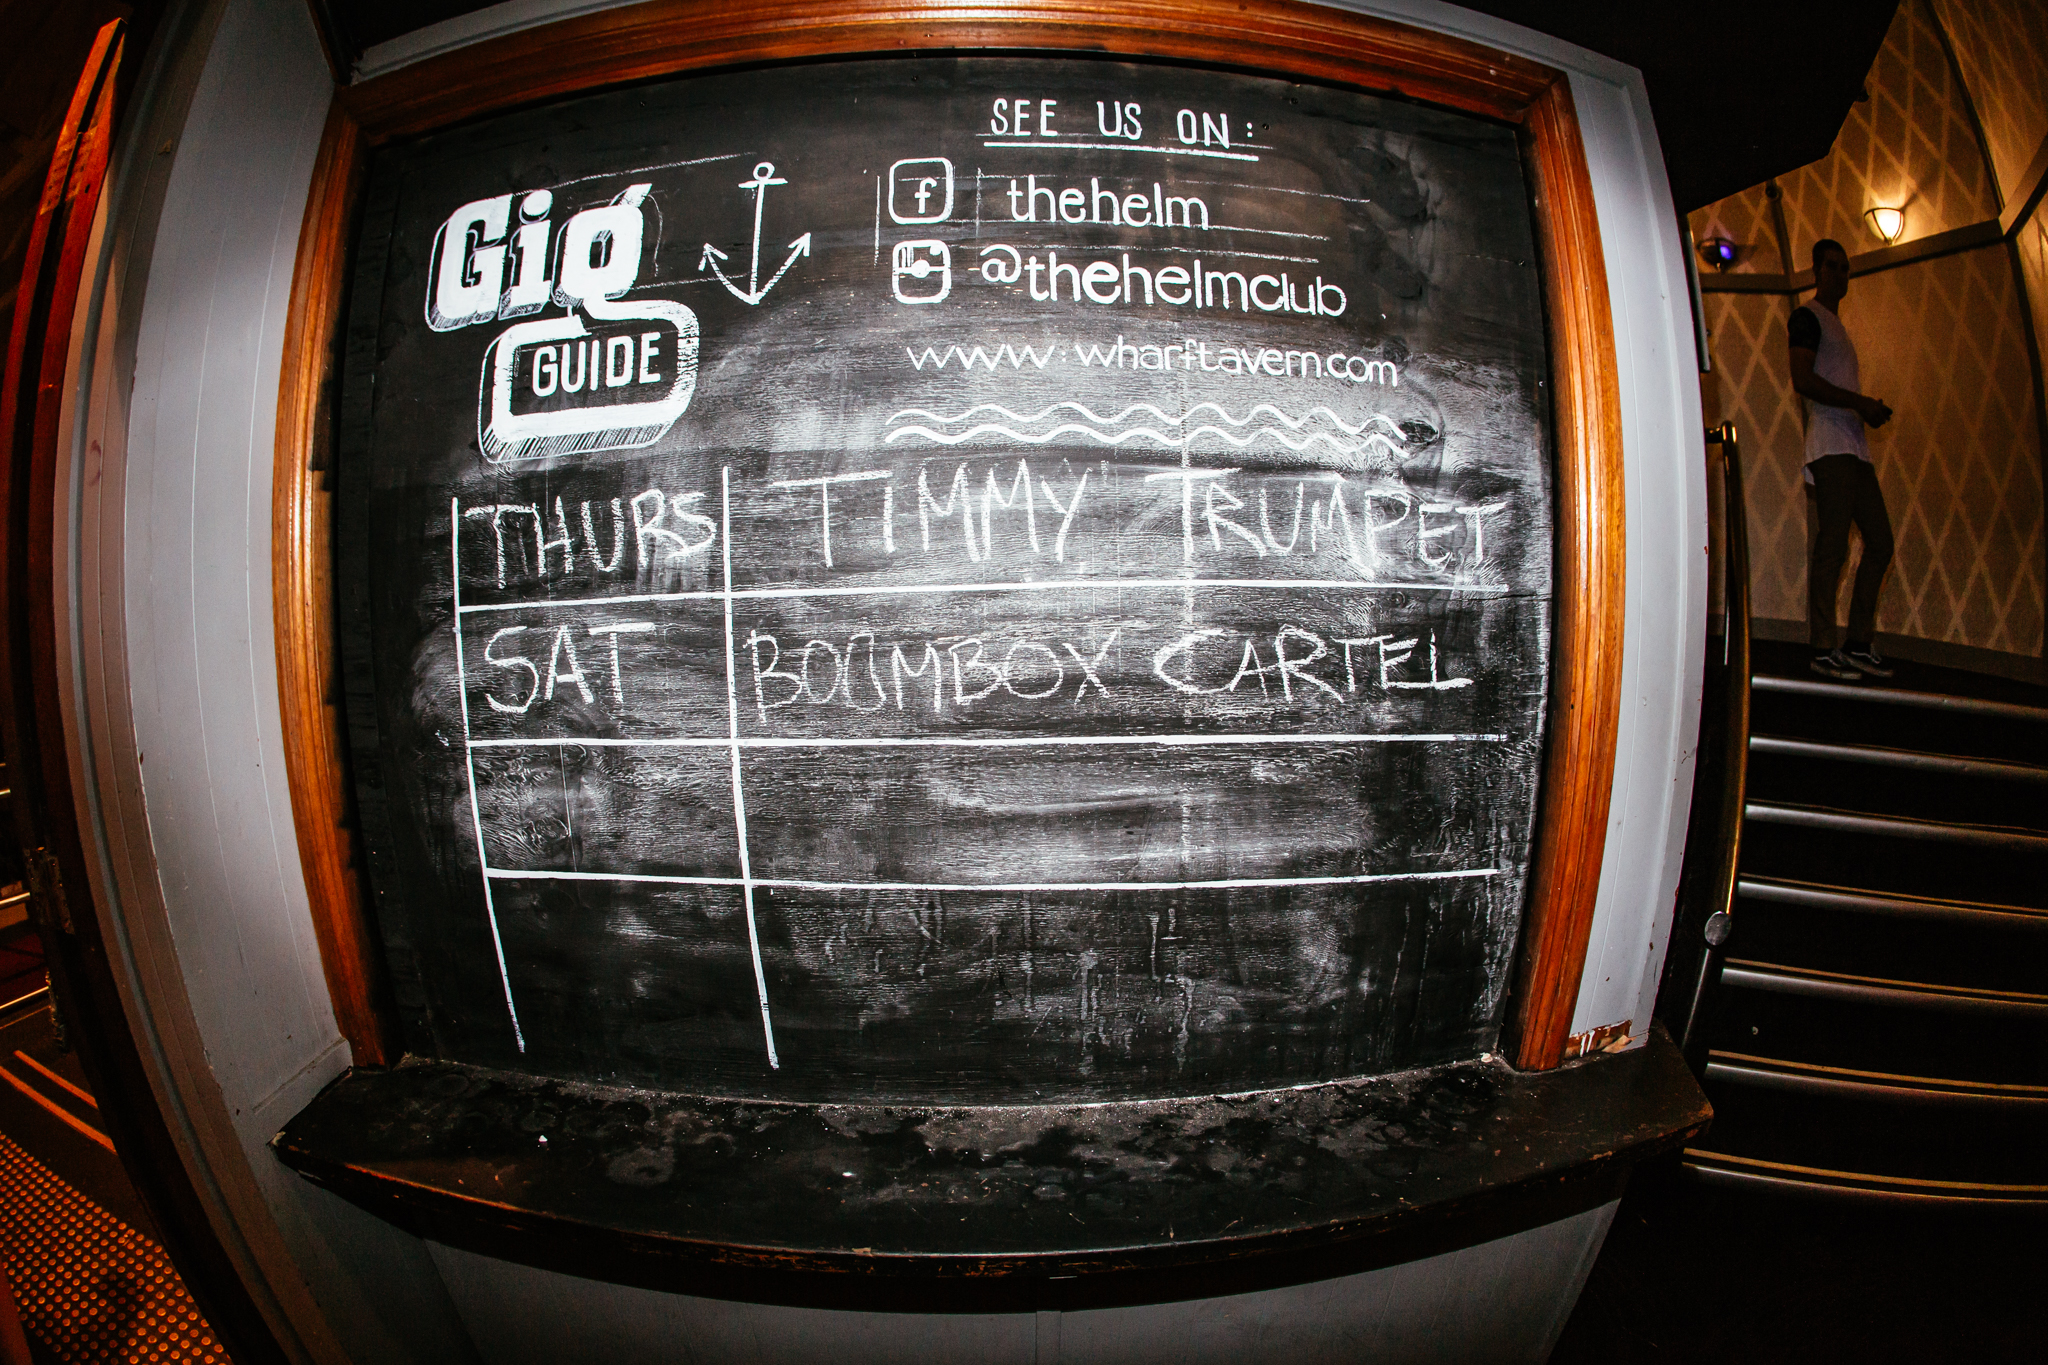 Gig
GUIDE
SEE US ON:
f thehelm
@thehelmclub
www.wharftavern.com
THURS TIMMY TRUMPET
SAT BOOMBOX CARTEL